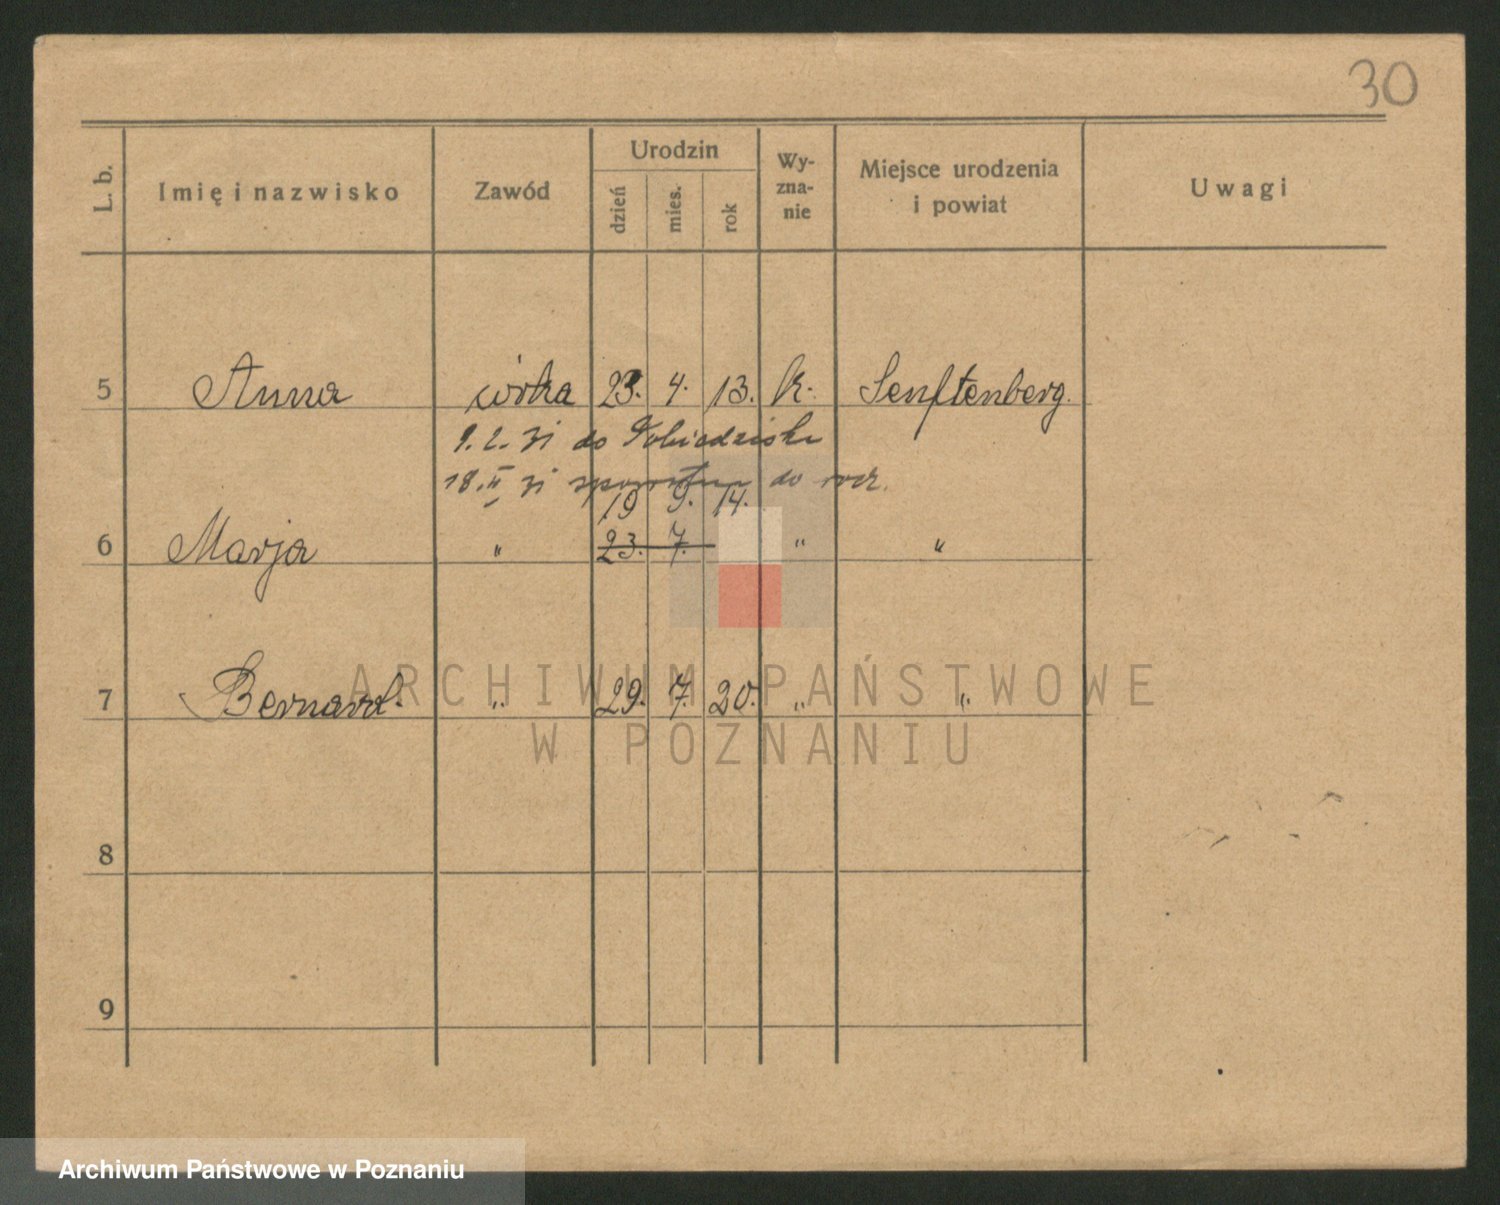 30
L. b. Imię i nazwisko Zawód Urodzin Wy- Miejsce urodzenia Uwagi
dzień mies. rok zna- i powiat
nie
5 Anna córka 23. 4. 13. k. Senftenberg.
9. 2. 31 do Pobiedzisk
18. II 31 do rodz.
19 9. 14.
6 Marja " 23. 7. " "
7 Bernard. " 29. 7. 20. " "
8
9
ARCHIWUM PAŃSTWOWE
W POZNANIU
Archiwum Państwowe w Poznaniu